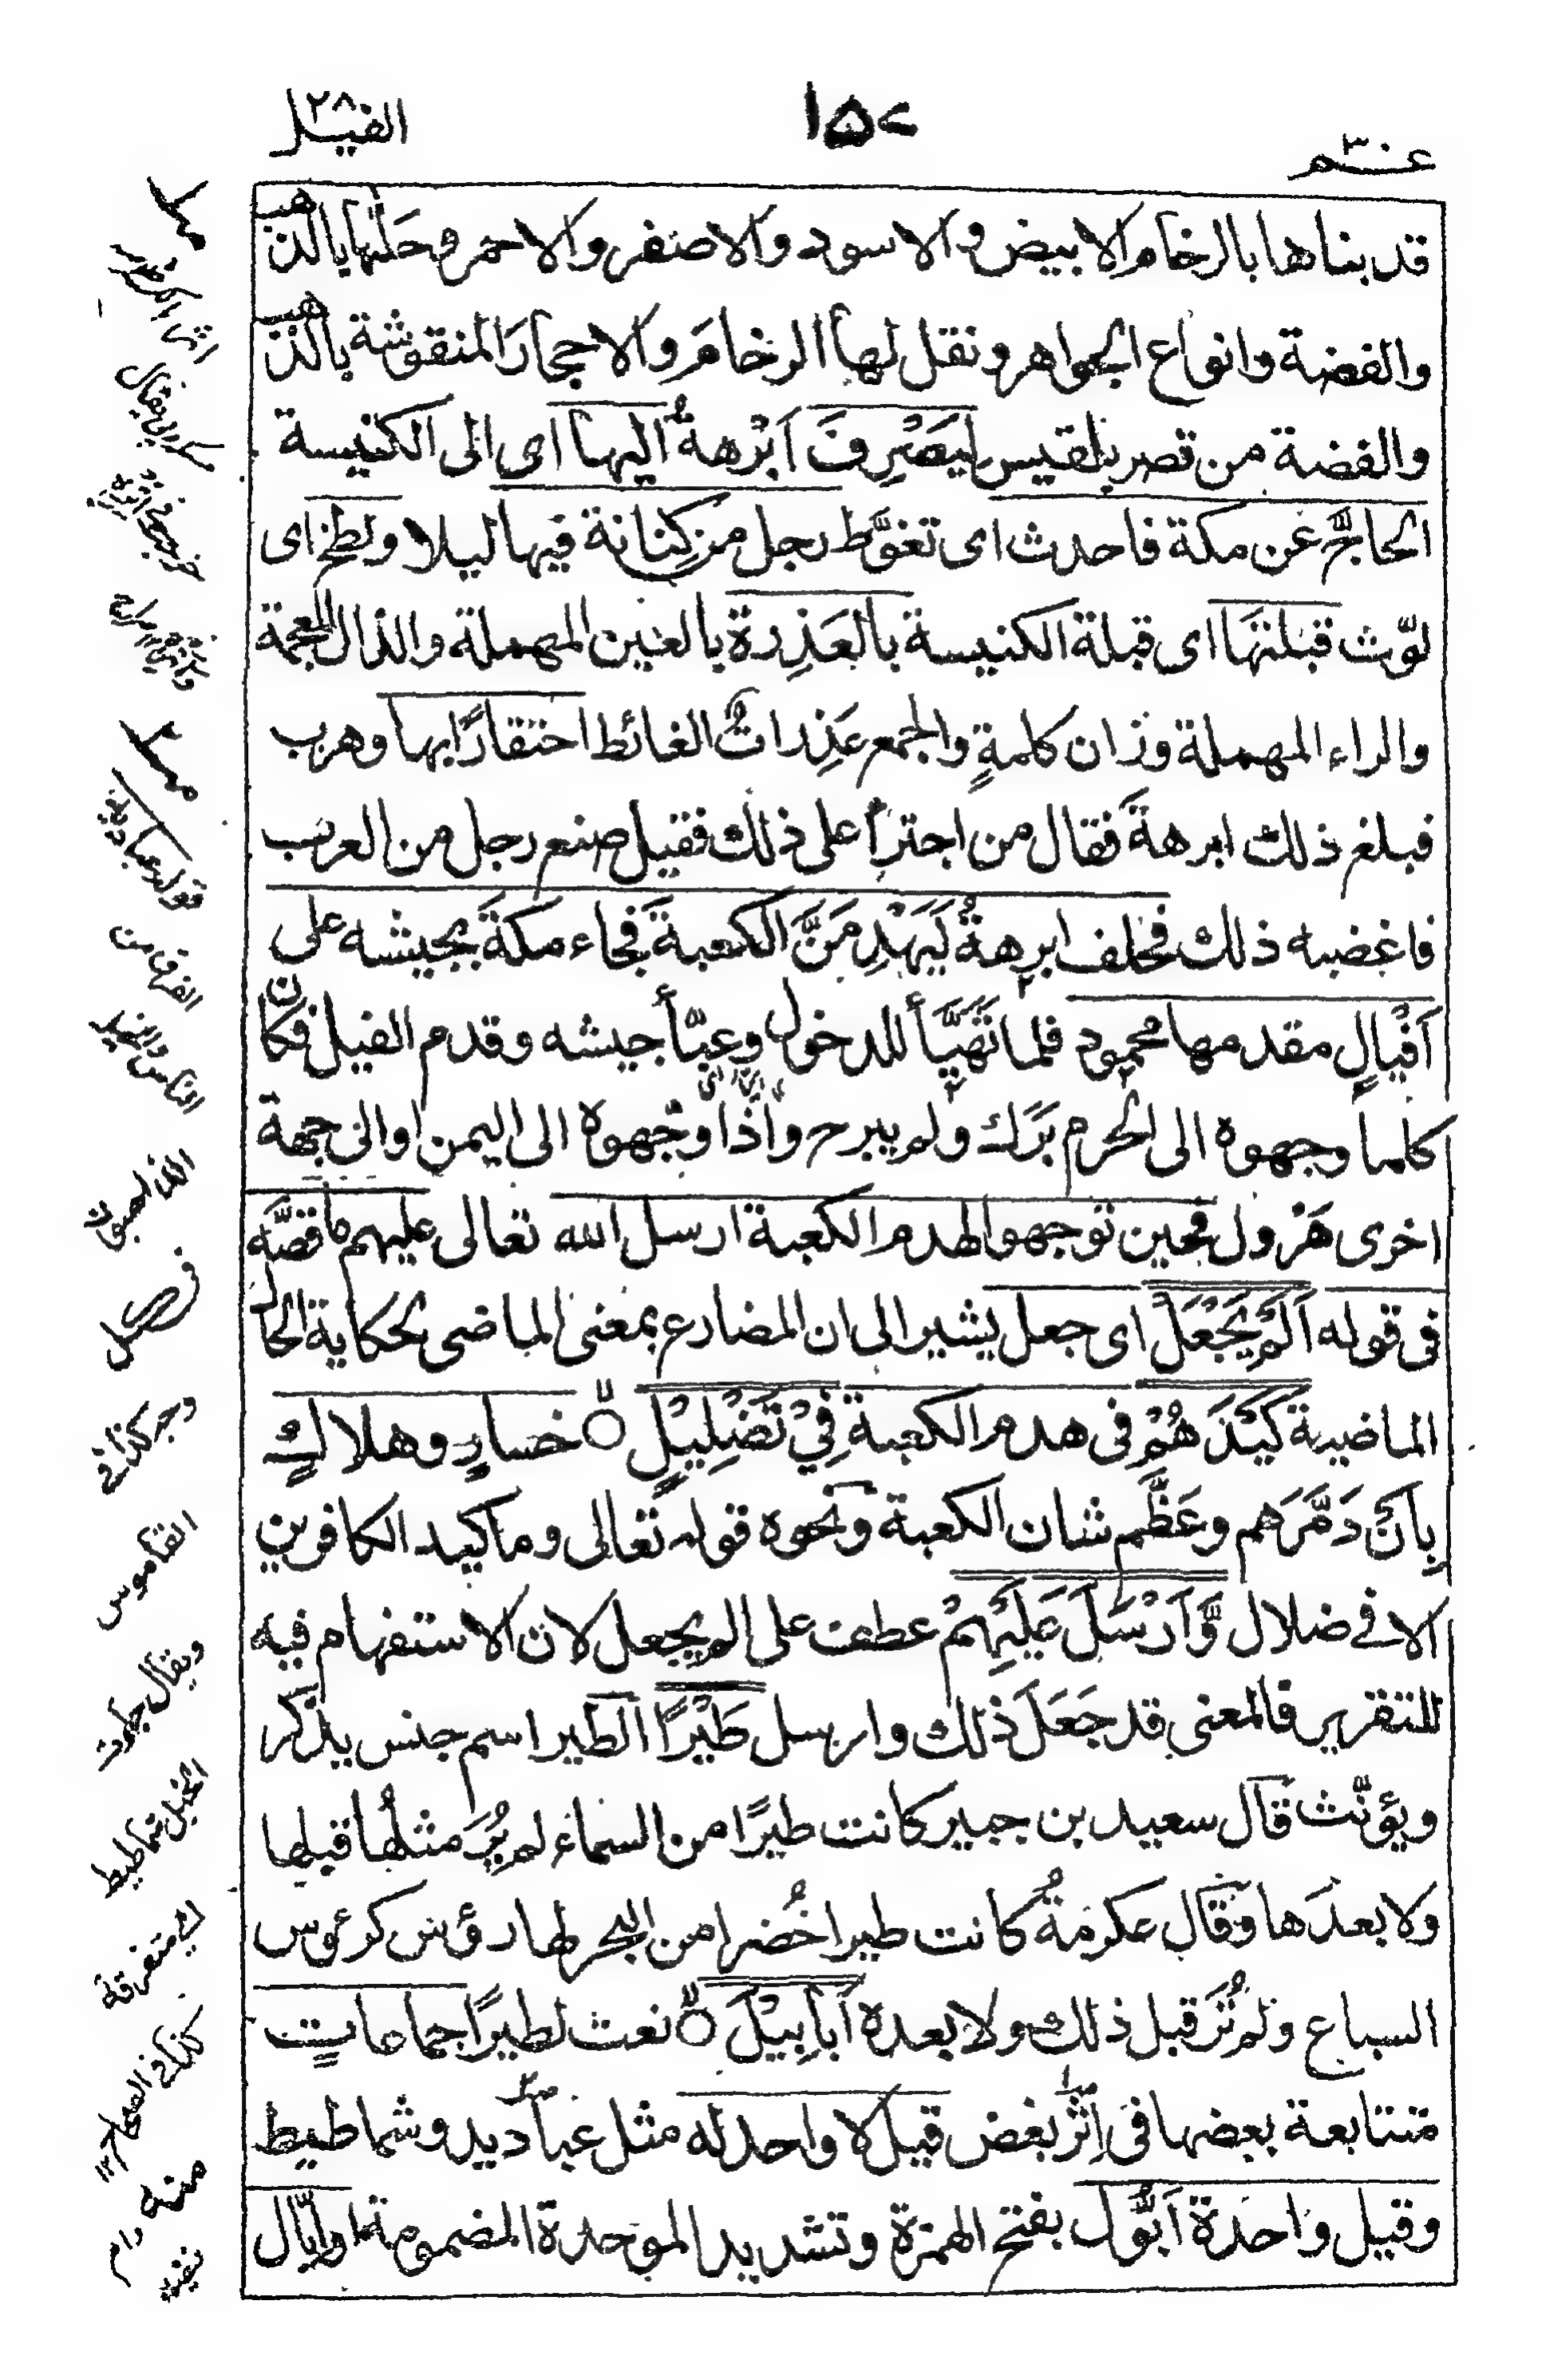 عم ٣٠
١٥٧
الفيل ٢٨
قد بناها بالرخام الابيض والاسود والاصفر والاحمر وحلّٰها بالذهب
والفضة وانواع الجواهر ونقل لها الرخامَ والاحجارَ المنقوشة بالذهب
والفضة من قصر بلقيس ليَصْرِفَ اَبْرَهةُ اليها اى الى الكنيسة
الحاجَّ عن مكة فاحدث اى تغوَّط رجل من كِنانة فيها ليلا ولطخ اى
لوّث قبلتَها اى قبلة الكنيسة بالعَذِرة بالعين المهملة والذال المعجمة
والراء المهملة وزان كلمةٍ والجمع عَذِراتٌ الغائط احتقارًا بها وهرب
فبلغ ذلك ابرهةَ فقال من اجترأ على ذلك فقيل صنع رجل من العرب
فاغضبه ذلك فحلف ابرهةُ لَيَهْدِمَنَّ الكعبةَ فجاء مكةَ بجيشه على
اَفْيالٍ مقدمها محمود فلما تهَيَّأ للدخول وعبّأ جيشه وقدم الفيل فكان
كلما وجهوه الى الحرم بَرَك ولم يبرح واذا وجّهوه الى اليمن او الى جهة
اخرى هَرْول فحين توجهوا لهدم الكعبة ارسل الله تعالى عليهم ما قصَّه
فى قوله اَلَمْ يَجْعَلْ اى جعل يشير الى ان المضارع بمعنى الماضى لحكاية الحال
الماضية كَيْدَهُمْ فى هدم الكعبة فِيْ تَضْلِيْلٍ خسارٍ وهلاكٍ
بِاَنْ دَمَّرَهم وعَظَّم شان الكعبة ونحوه قوله تعالى وما كيد الكافرين
الا فى ضلال وَّاَرْسَلَ عَلَيْهِمْ عطف على الم يجعل لان الاستفهام فيه
للتقرير فالمعنى قد جَعَلَ ذلك وارسل طَيْرًا الطير اسم جنس يذكر
ويؤنّث قال سعيد بن جبير كانت طيرًا من السماء لم يُرَ مثلُها قبلها
ولا بعدَها وقال عكرمةُ كانت طيرا خُضرا من البحر لها رؤس كرءوس
السباع ولم تُرَ قبل ذلك ولا بعده اَبَابِيْلَ نعت لطيرًا جماعاتٍ
متتابعة بعضها فى اِثْرِ بعض قيل لا واحد له مثل عباديد وشماطيط
وقيل واحدة اَبُّوْل بفتح الهمزة وتشديد الموحدة المضمومة او اِبّال
قوله عباديد
الفرق من
الناس
الذاهبون
فى كل
وجه كذا فى
القاموس
ويقال جاءت
الخيل شماطيط
اى متفرقة
كذا فى الصحاح ١٢
منه دام
فيضه